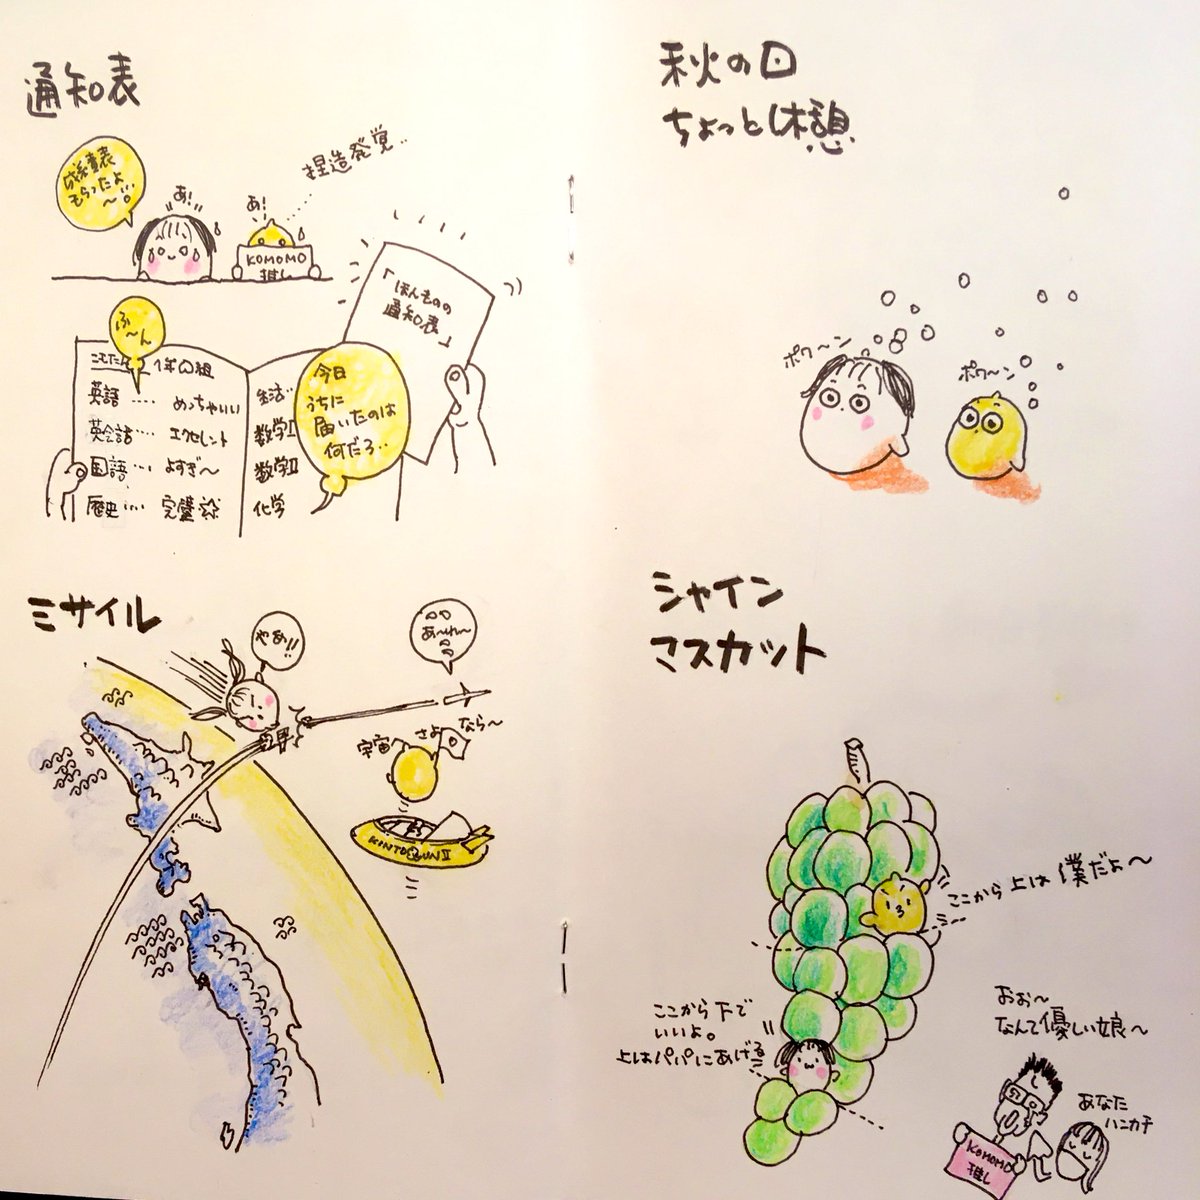 通知表
成績表
もらったよ
〜!!
あ!
あ!
捏造発覚..
KOMOMO
推し
「ほんものの
通知表」
ふ〜ん
1年〇組
英語 .... めっちゃいい
英会話 .... エクセレント
国語 ... よすぎ〜
歴史 .... 完璧
生活..
数学I
数学II
化学
今日
うちに
届いたのは
何だろ..
秋の日
ちょっと休憩
ポワ〜ン
ポワ〜ン
ミサイル
やめ!!
あ〜れ〜
宇宙へ さよなら〜
KINTOUN II
シャイン
マスカット
ここから上は僕だよ〜
ここから下で
いいよ。
上はパパにあげる
おぉ〜
なんて優しい娘〜
あなた
ハンカチ
KOMOMO
推し